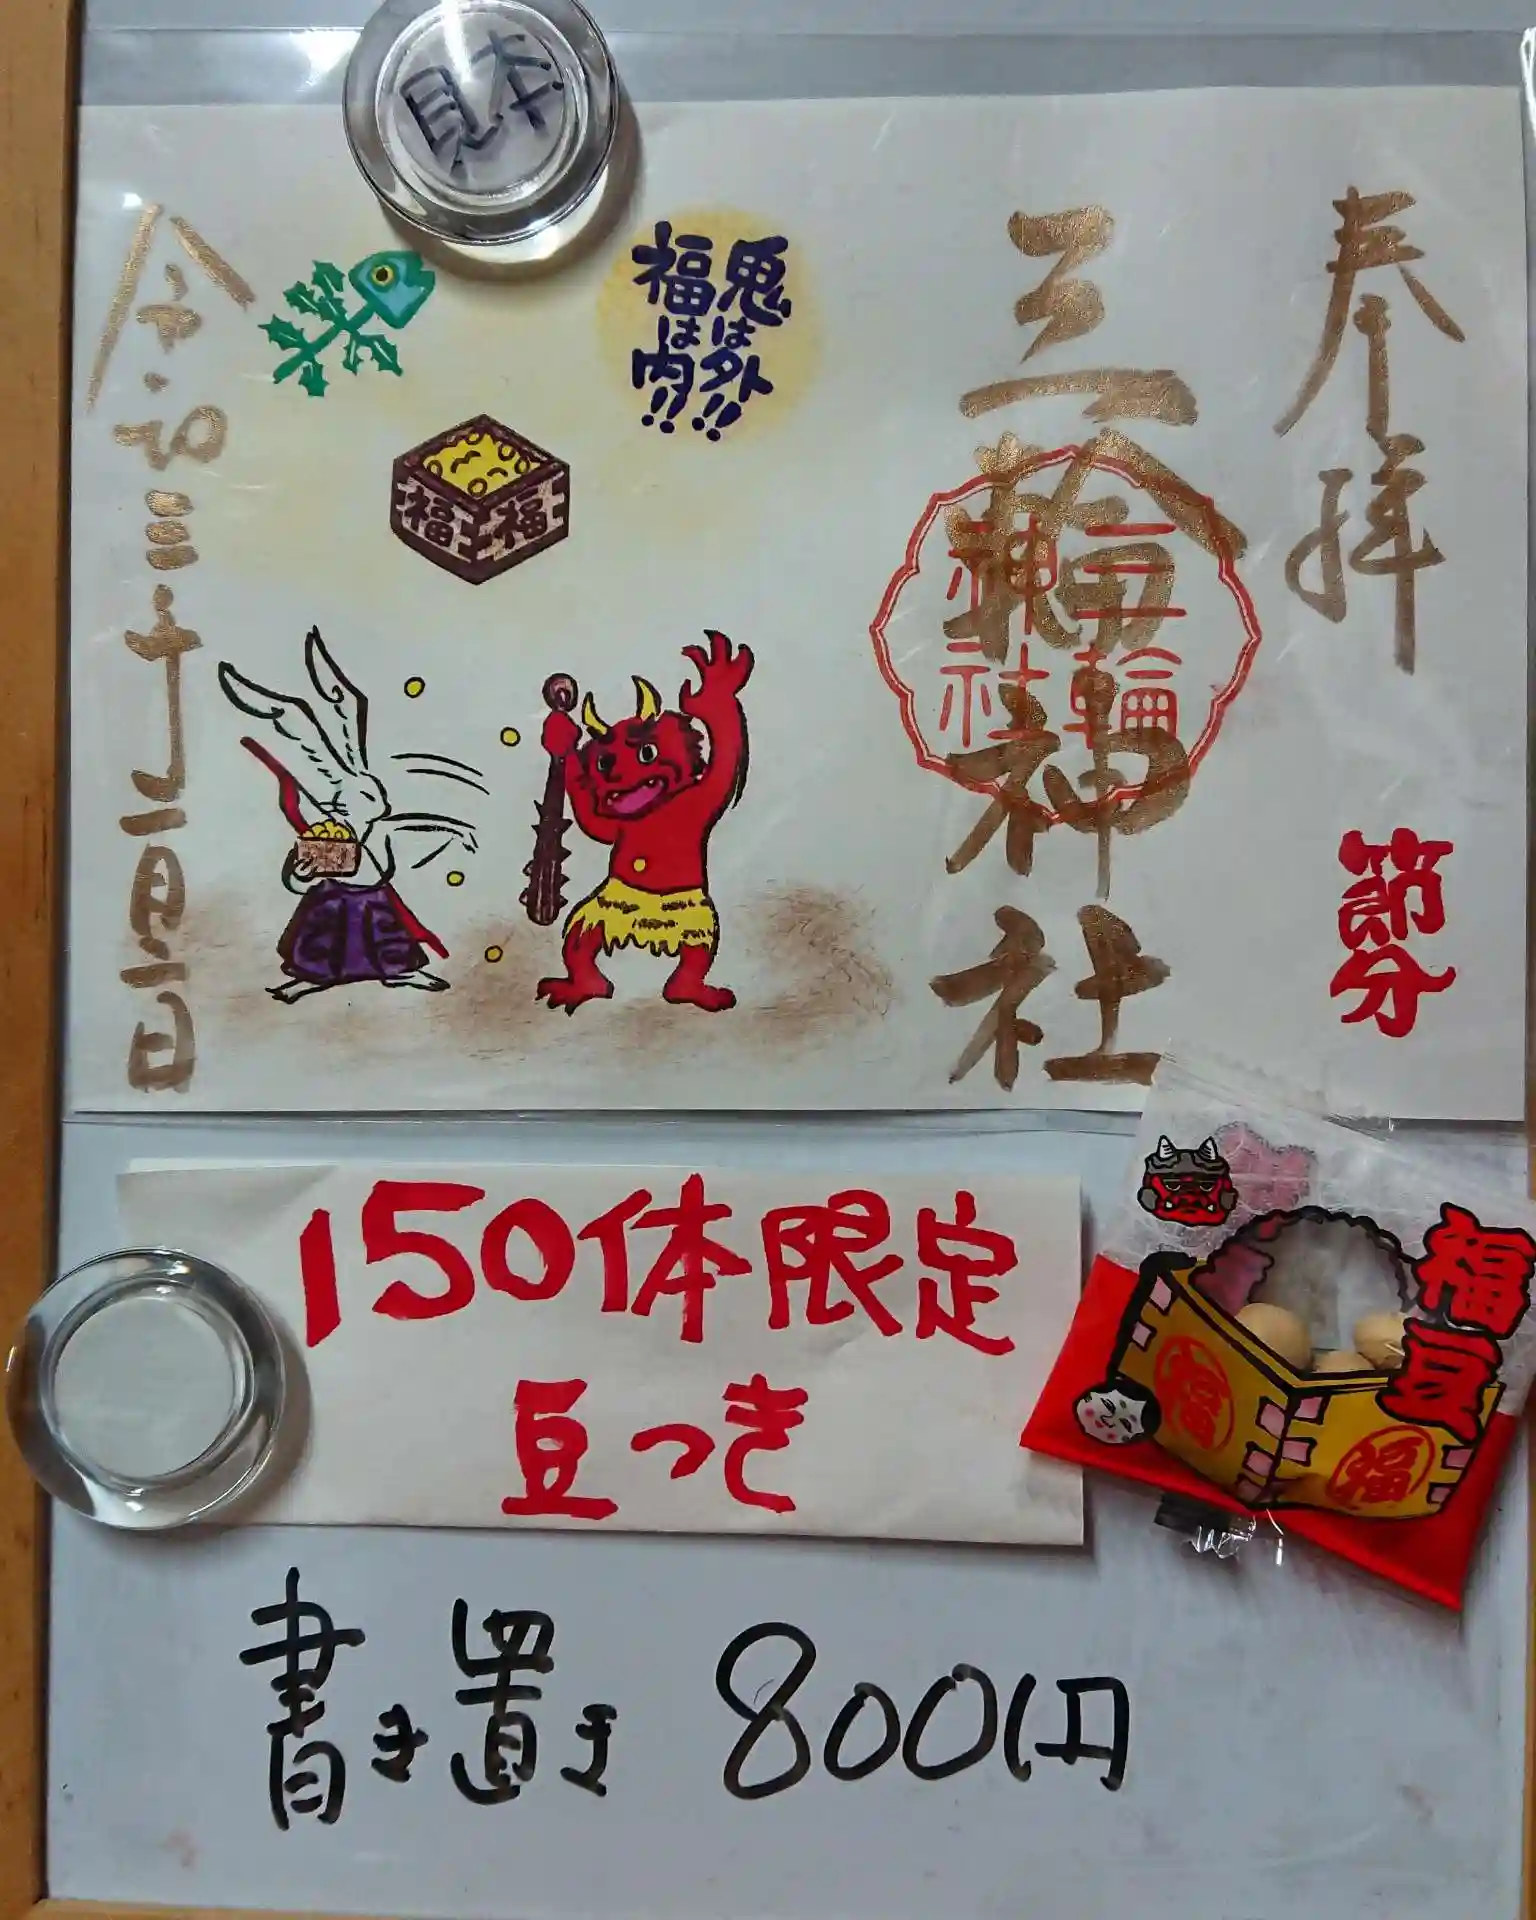 見本
奉拝
節分
三輪神社
三輪
神社
鬼は外!!
福は内!!
福
福
令和三年二月二日
150体限定
豆つき
福豆
福
福
書き置き 800円